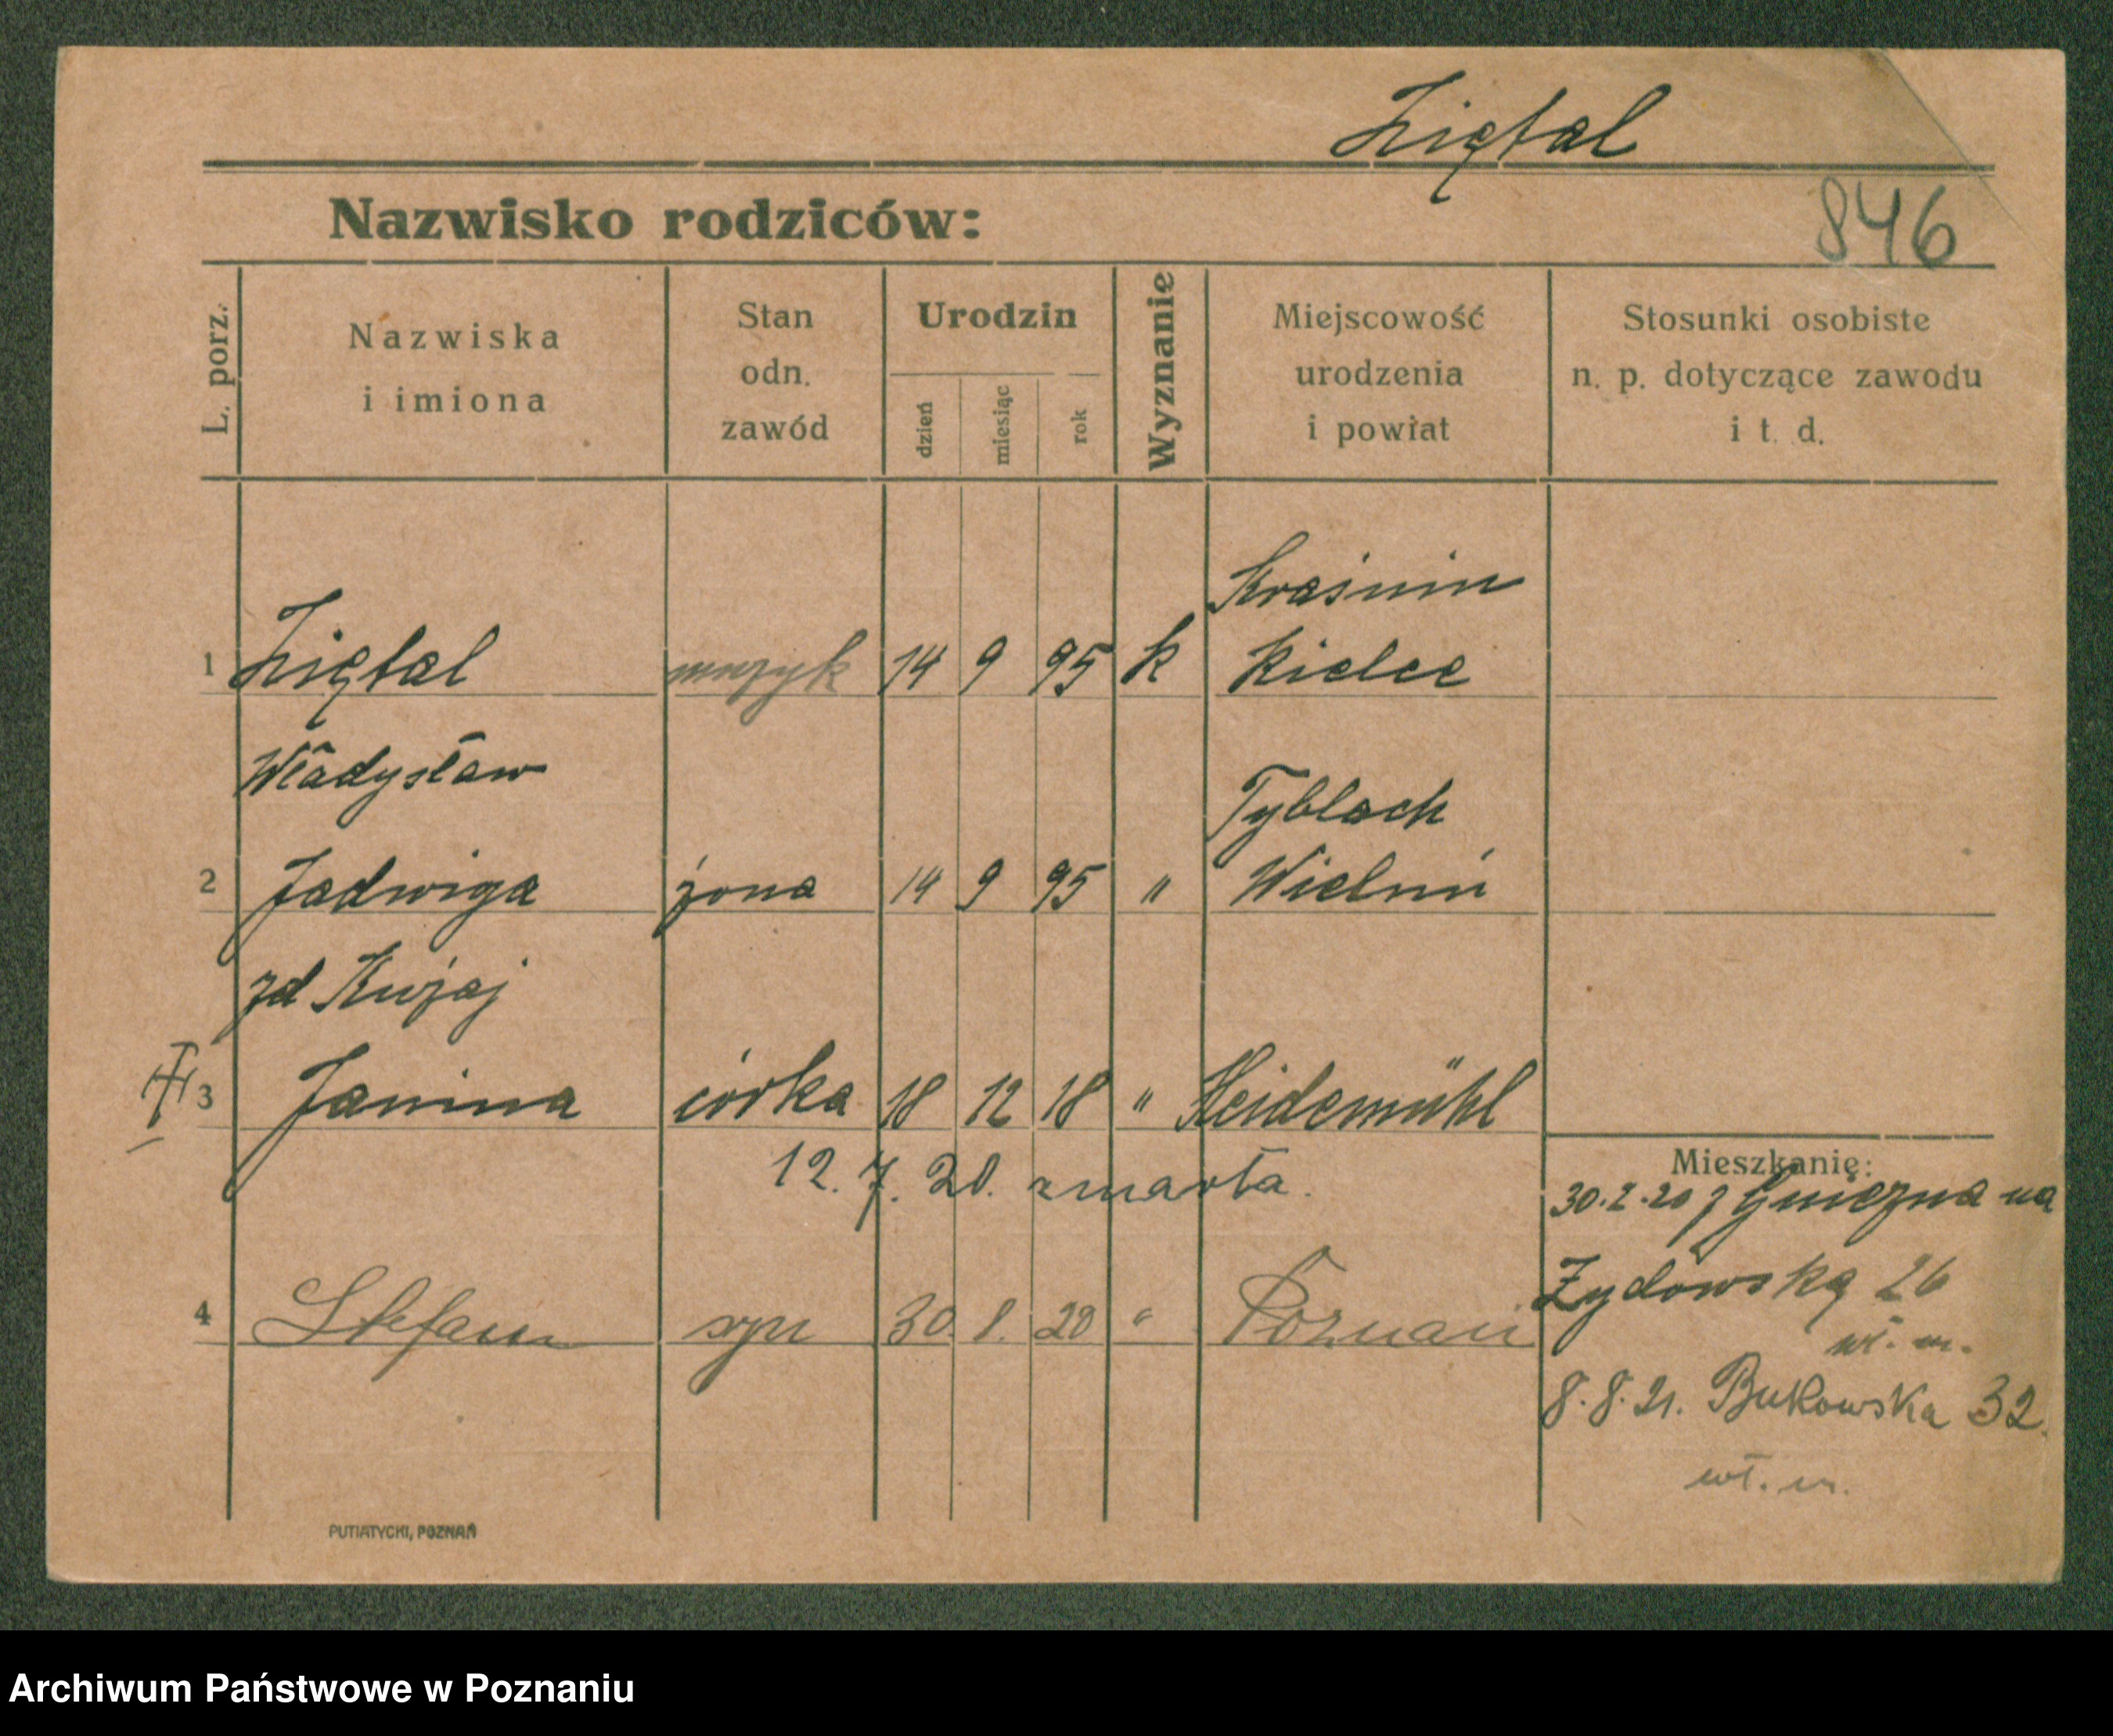 Ziętal
846
Nazwisko rodziców:
L. porz.
Nazwiska
i imiona
Stan
odn.
zawód
Urodzin
dzień
miesiąc
rok
Wyznanie
Miejscowość
urodzenia
i powiat
Stosunki osobiste
n. p. dotyczące zawodu
i t. d.
Kraśnin
1 Ziętal muzyk 14 9 95 k Kielce
Władysław
Tyblach
2 Jadwiga żona 14 9 95 " Wieluń
zd Kujaj
3 Janina córka 18 12 18 " Heidemühl
12. 7. 20. zmarła.
Mieszkanie:
30.7.20 z Gniezna na
Żydowską 26
wł. m.
4 Stefan syn 30. 8. 20 " Poznań
8.8.21. Bukowska 32.
wł. m.
PUTIATYCKI, POZNAŃ
Archiwum Państwowe w Poznaniu